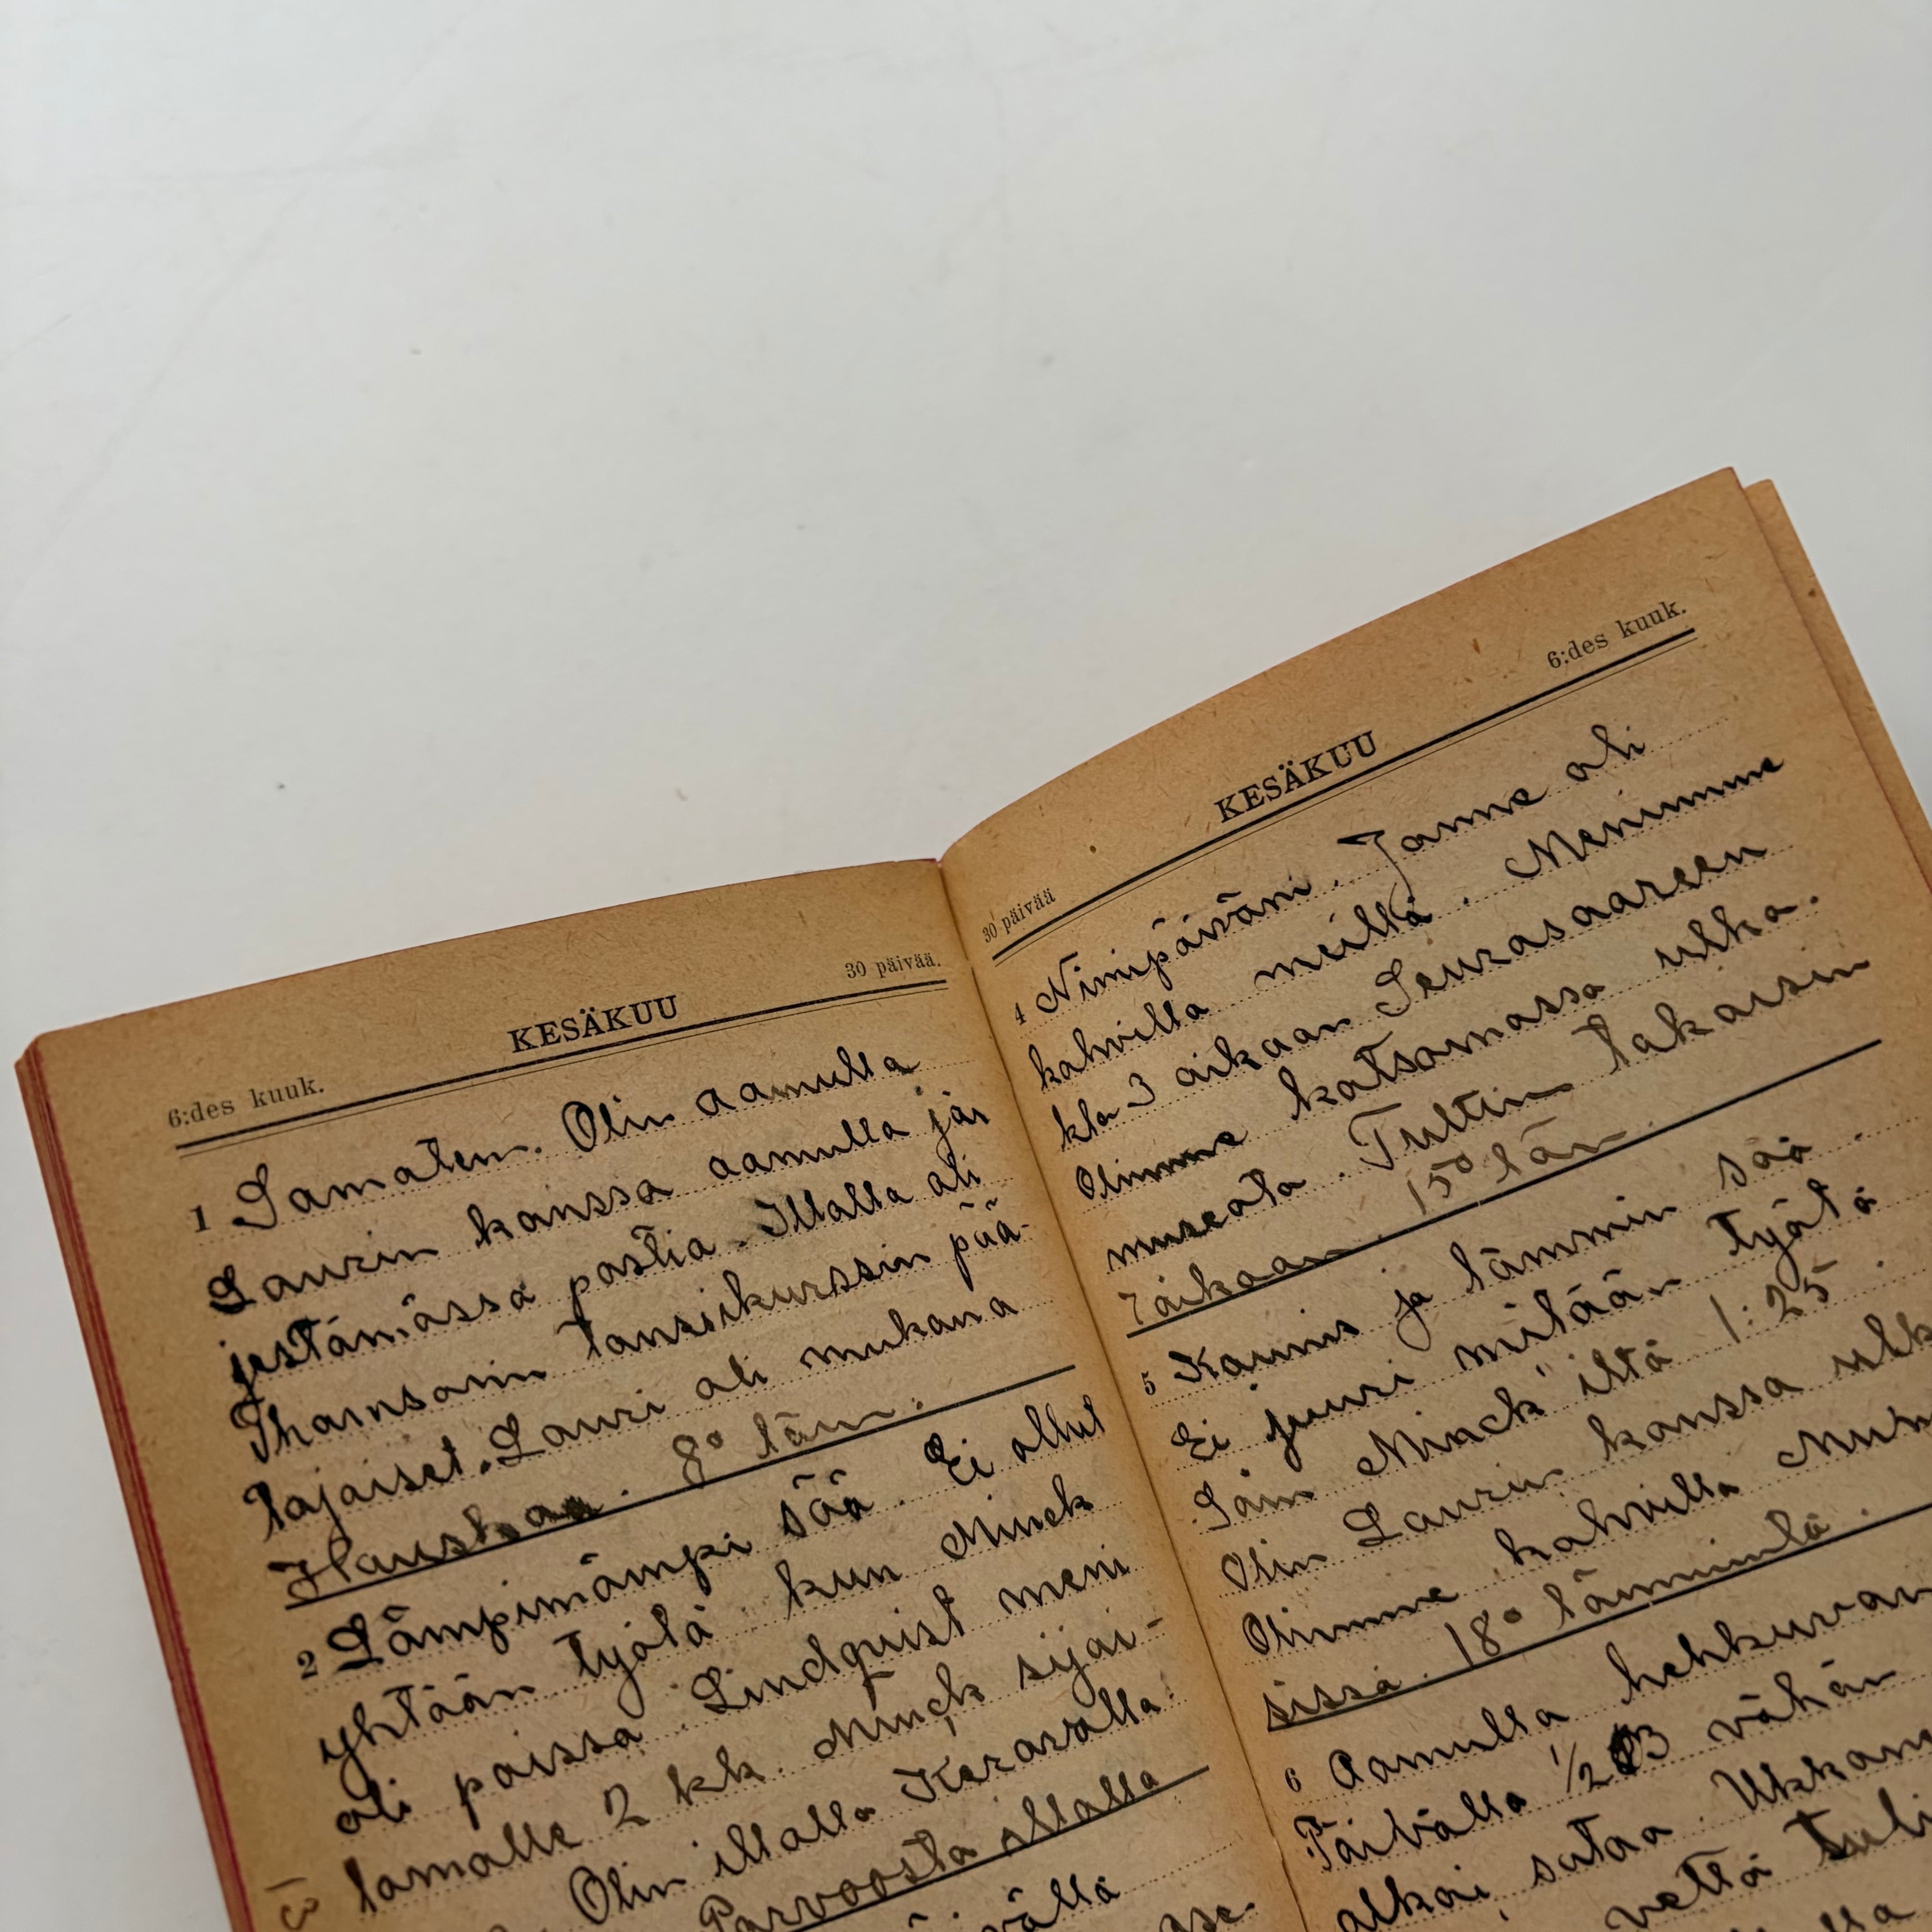 6:des kuuk. KESÄKUU 30 päivää.
1 Samaten. Olin aamulla
Laurin kanssa aamulla jär
jestämässä postia. Illalla oli
Thomsonin tanssikurssin pää-
täjäiset. Lauri oli mukana
Hauskaa. 8° läm.
2 Lämpimämpi sää. Ei ollut
yhtään työtä kun Minck
oli poissa. Lindquist meni
lomalle 2 kk. Minck sijai-
Olin illalla Keravalla
Porvoosta illalla
30 päivää KESÄKUU 6:des kuuk.
4 Nimipäiväni. Janne oli
kahvilla meillä. Menimme
klo 3 aikaan Seurasaareen
Olimme katsomassa ulko.
museota. Tultiin takaisin
7 aikaan. 15° läm.
5 Kaunis ja lämmin sää.
Ei juuri mitään työtä
Sain Minck' iltä 1:25.
Olin Laurin kanssa ulk
Olimme kahvilla Mun
sissa. 18° lämmintä.
6 Aamulla hehkuvan
Päivällä 1/2 3 vähän
alkoi sataa. Ukkon
vettä tuli